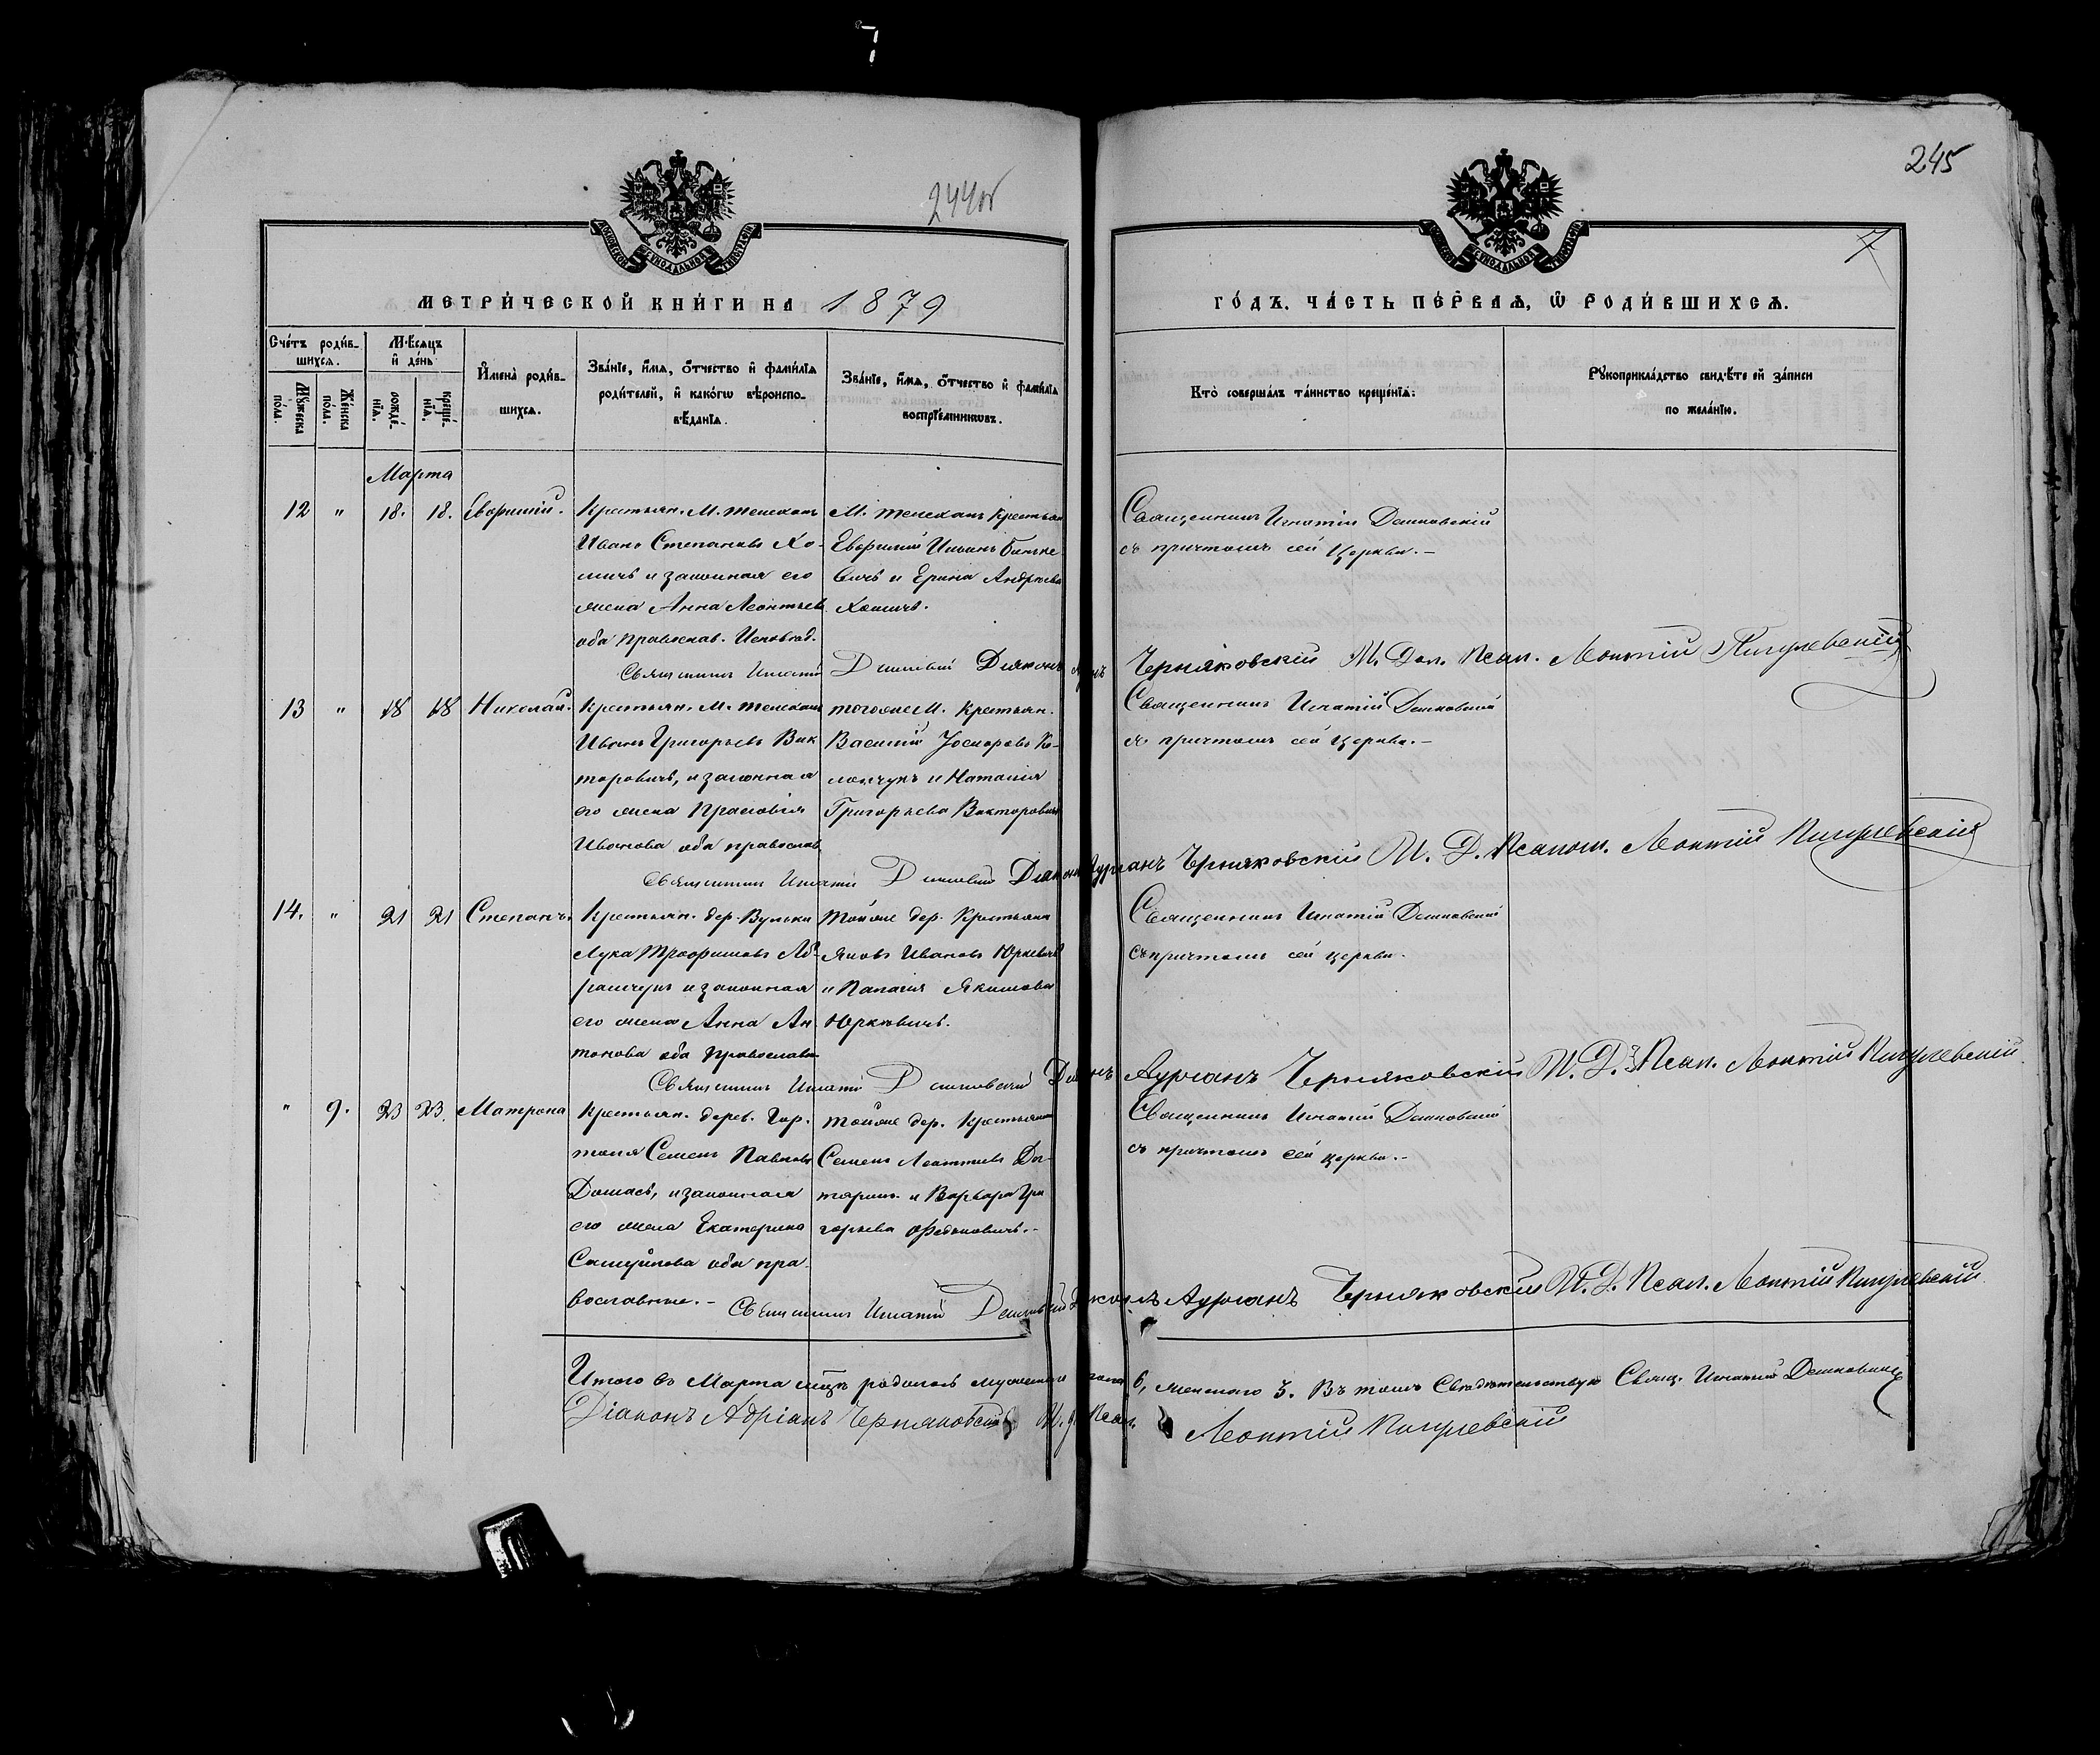 7
244об
245
7
МОСКОВСКОЙ СѴНОДАЛЬНОЙ ТИПОГРАФІИ
МОСКОВСКОЙ СѴНОДАЛЬНОЙ ТИПОГРАФІИ
МЕТРИ́ЧЕСКОЙ КНИ́ГИ НА 1879
ГО́ДЪ, ЧА́СТЬ ПЕ́РВАѦ, Ѡ҆ РОДИ́ВШИХСѦ.
Сче́тъ роди́в-
шихсѧ.
Мꙋ́жеска по́ла.
Же́нска по́ла.
Мѣ́сѧцъ
и҆ де́нь
рожде́-нїѧ.
креще́-нїѧ.
И҆мена̀ роди́в-
шихсѧ.
Зва́нїе, и҆́мѧ, ѻ҆́тчество и҆ фами́лїѧ
роди́телей, и҆ како́гѡ вѣроиспо-
вѣ́данїѧ.
Зва́нїе, и҆́мѧ, ѻ҆́тчество и҆ фами́лїѧ
воспрїе́мникѡвъ.
Кто̀ соверша́лъ та́инство креще́нїѧ:
Рꙋкоприкла́дство свидѣ́телей за́писи
по жела́нїю.
Марта
12 " 18. 18. Евфимій.
Крестьян. М. Телехан
Иванъ Степановъ Хо-
мичъ и законная его
жена Анна Леонтьев
оба православ. Исповѣд.
М. Телеханъ Крестьян
Евфимій Ильинъ
и Ерина Андреева
Хомичъ.
Священникъ Игнатій Дашковскій
съ причтомъ сей Церкви.-
Священникъ Игнатій Дашковскій Діаконъ
Черняковскій И. Дол. Псал. Леонтій Пигулевскій
13 " 18 18 Николай.
Крестьян. М. Телехан
Иванъ Григорьевъ Вик
торовичъ, и законная
его жена Прасковія
Иванова оба православ
тогоже М. Крестьян.
Василій
и Наталія
Григорьева Викторовичъ
Священникъ Игнатій Дашковскій
съ причтомъ сей Церкви.-
Священникъ Игнатій Дашковскій Діаконъ Адріанъ Черняковскій И. Д. Псалом. Леонтій Пигулевскій
14. " 21 21 Степанъ.
Крестьян. дер. Вульки
Лука Трофимовъ Аб-
рамчукъ и законная
его жена Анна Ан
тонова оба православн
Тойже дер. Крестьяне
Яковъ Ивановъ Юркевичъ
и Якимова
Юркевичъ.
Священникъ Игнатій Дашковскій
съ причтомъ сей церкви.
Священникъ Игнатій Дашковскій Діаконъ Адріанъ Черняковскій И. Д. Псал. Леонтій Пигулевскій
" 9. 23 23. Матрона
Крестьян. дерев. Гор-
таля Семенъ Павловъ
Домасъ, и законная
его жена Екатерина
Самуйлова оба пра-
вославные.-
Тойже дер. Крестьяне
Семенъ Леонтіевъ
и Варвара Гри
горьева Федьковичъ.-
Священникъ Игнатій Дашковскій
съ причтомъ сей церкви.-
Священникъ Игнатій Дашковскій Діаконъ Адріанъ Черняковскій И. Д. Псал. Леонтій Пигулевскій
Итого въ Марта мцѣ родилось мужескаго пола 6, женскаго 3. Въ томъ Свидѣтельствую Свящ. Игнатій Дашковскій
Діаконъ Адріанъ Черняковскій И. д. Псал. Леонтій Пигулевскій